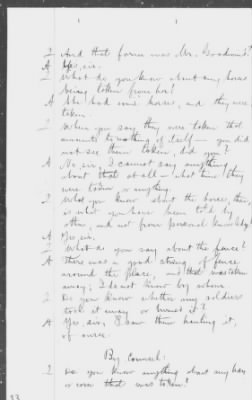 Q And that farm was Mr. Goodwin's?
A Yes, sir.
Q What do you know about any horses
being taken from her?
A She had some horses, and they were
taken.
Q When you say they were taken that
amounts to nothing of itself - you did
not see them taken, did you?
A No, sir, I cannot say anything
about that at all - what time they
were taken or anything.
Q What you know about the horses, then,
is what you have been told by
others, and not from personal knowledge?
A Yes, sir.
Q What do you say about the fence?
A There was a good string of fence
around the place, and that was taken
away; I do not know by whom.
Q Do you know whether any soldiers
took it away or burned it?
A Yes, sir, I saw them hauling it,
of course.
By Counsel:
Q Do you know anything about any hay
or corn that was taken?
23